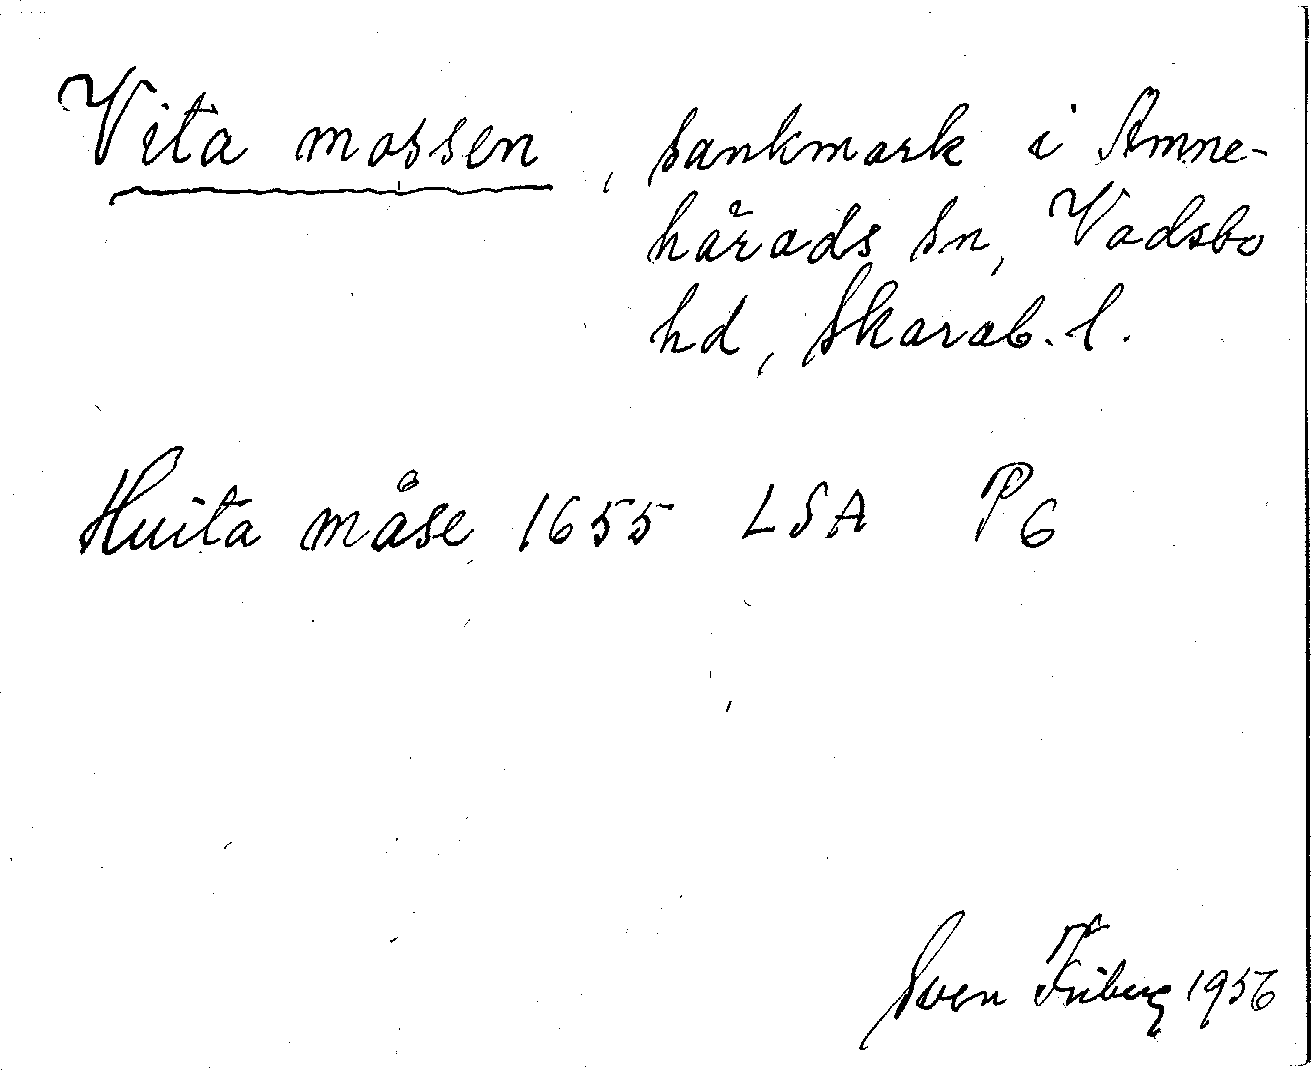 Vita mossen, sankmark i Amne-
härads sn, Vadsbo
hd, Skarab. l.
Huita måse 1655 LSA P6
Sven Friberg 1956